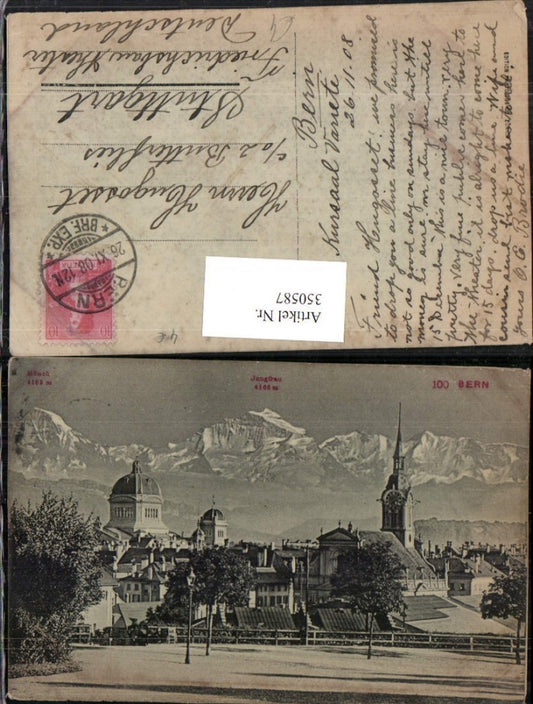 Bern
Kursaal Variete
26.11.08
Friend Hugosset: we promised
to drop you a line business here is
not so good only on sundays, but the
money is sure. on stay here until
15 December this is a nice town, very
pretty. Very fine public comes here to
the theater, it is alright to come here
for 15 days. drop us a line. Wife and
yours
O.E. Brodie
Herrn Hugosset
c/o 2 Butterflies
Stuttgart
Friedrichsbau theater
Deutschland
BERN
26.XI.08.
BRF. EXP.
10
10
Artikel Nr.
350587
Mönch
4105 m
Jungfrau
4166 m
100 BERN